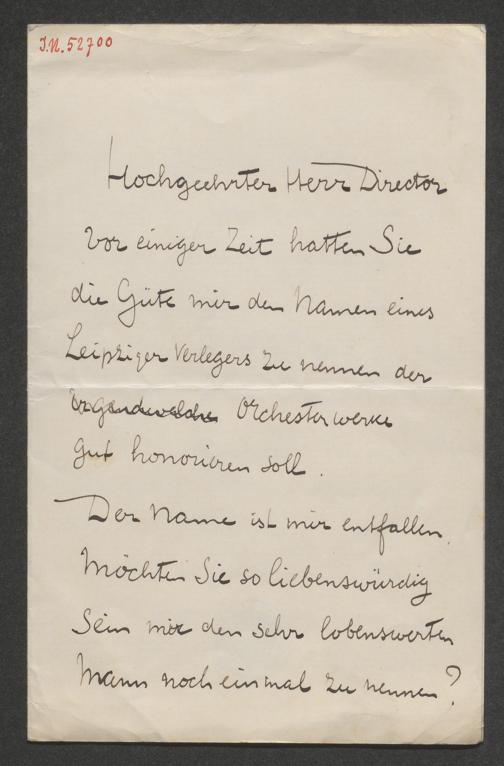 I.N. 52700
Hochgeehrter Herr Director
Vor einiger Zeit hatten Sie
die Güte mir den Namen eines
Leipziger Verlegers zu nennen der
irgendwelche Orchesterwerke
gut honorieren soll.
Der Name ist mir entfallen.
Möchten Sie so liebenswürdig
sein mir den sehr lobenswerten
Mann noch einmal zu nennen?